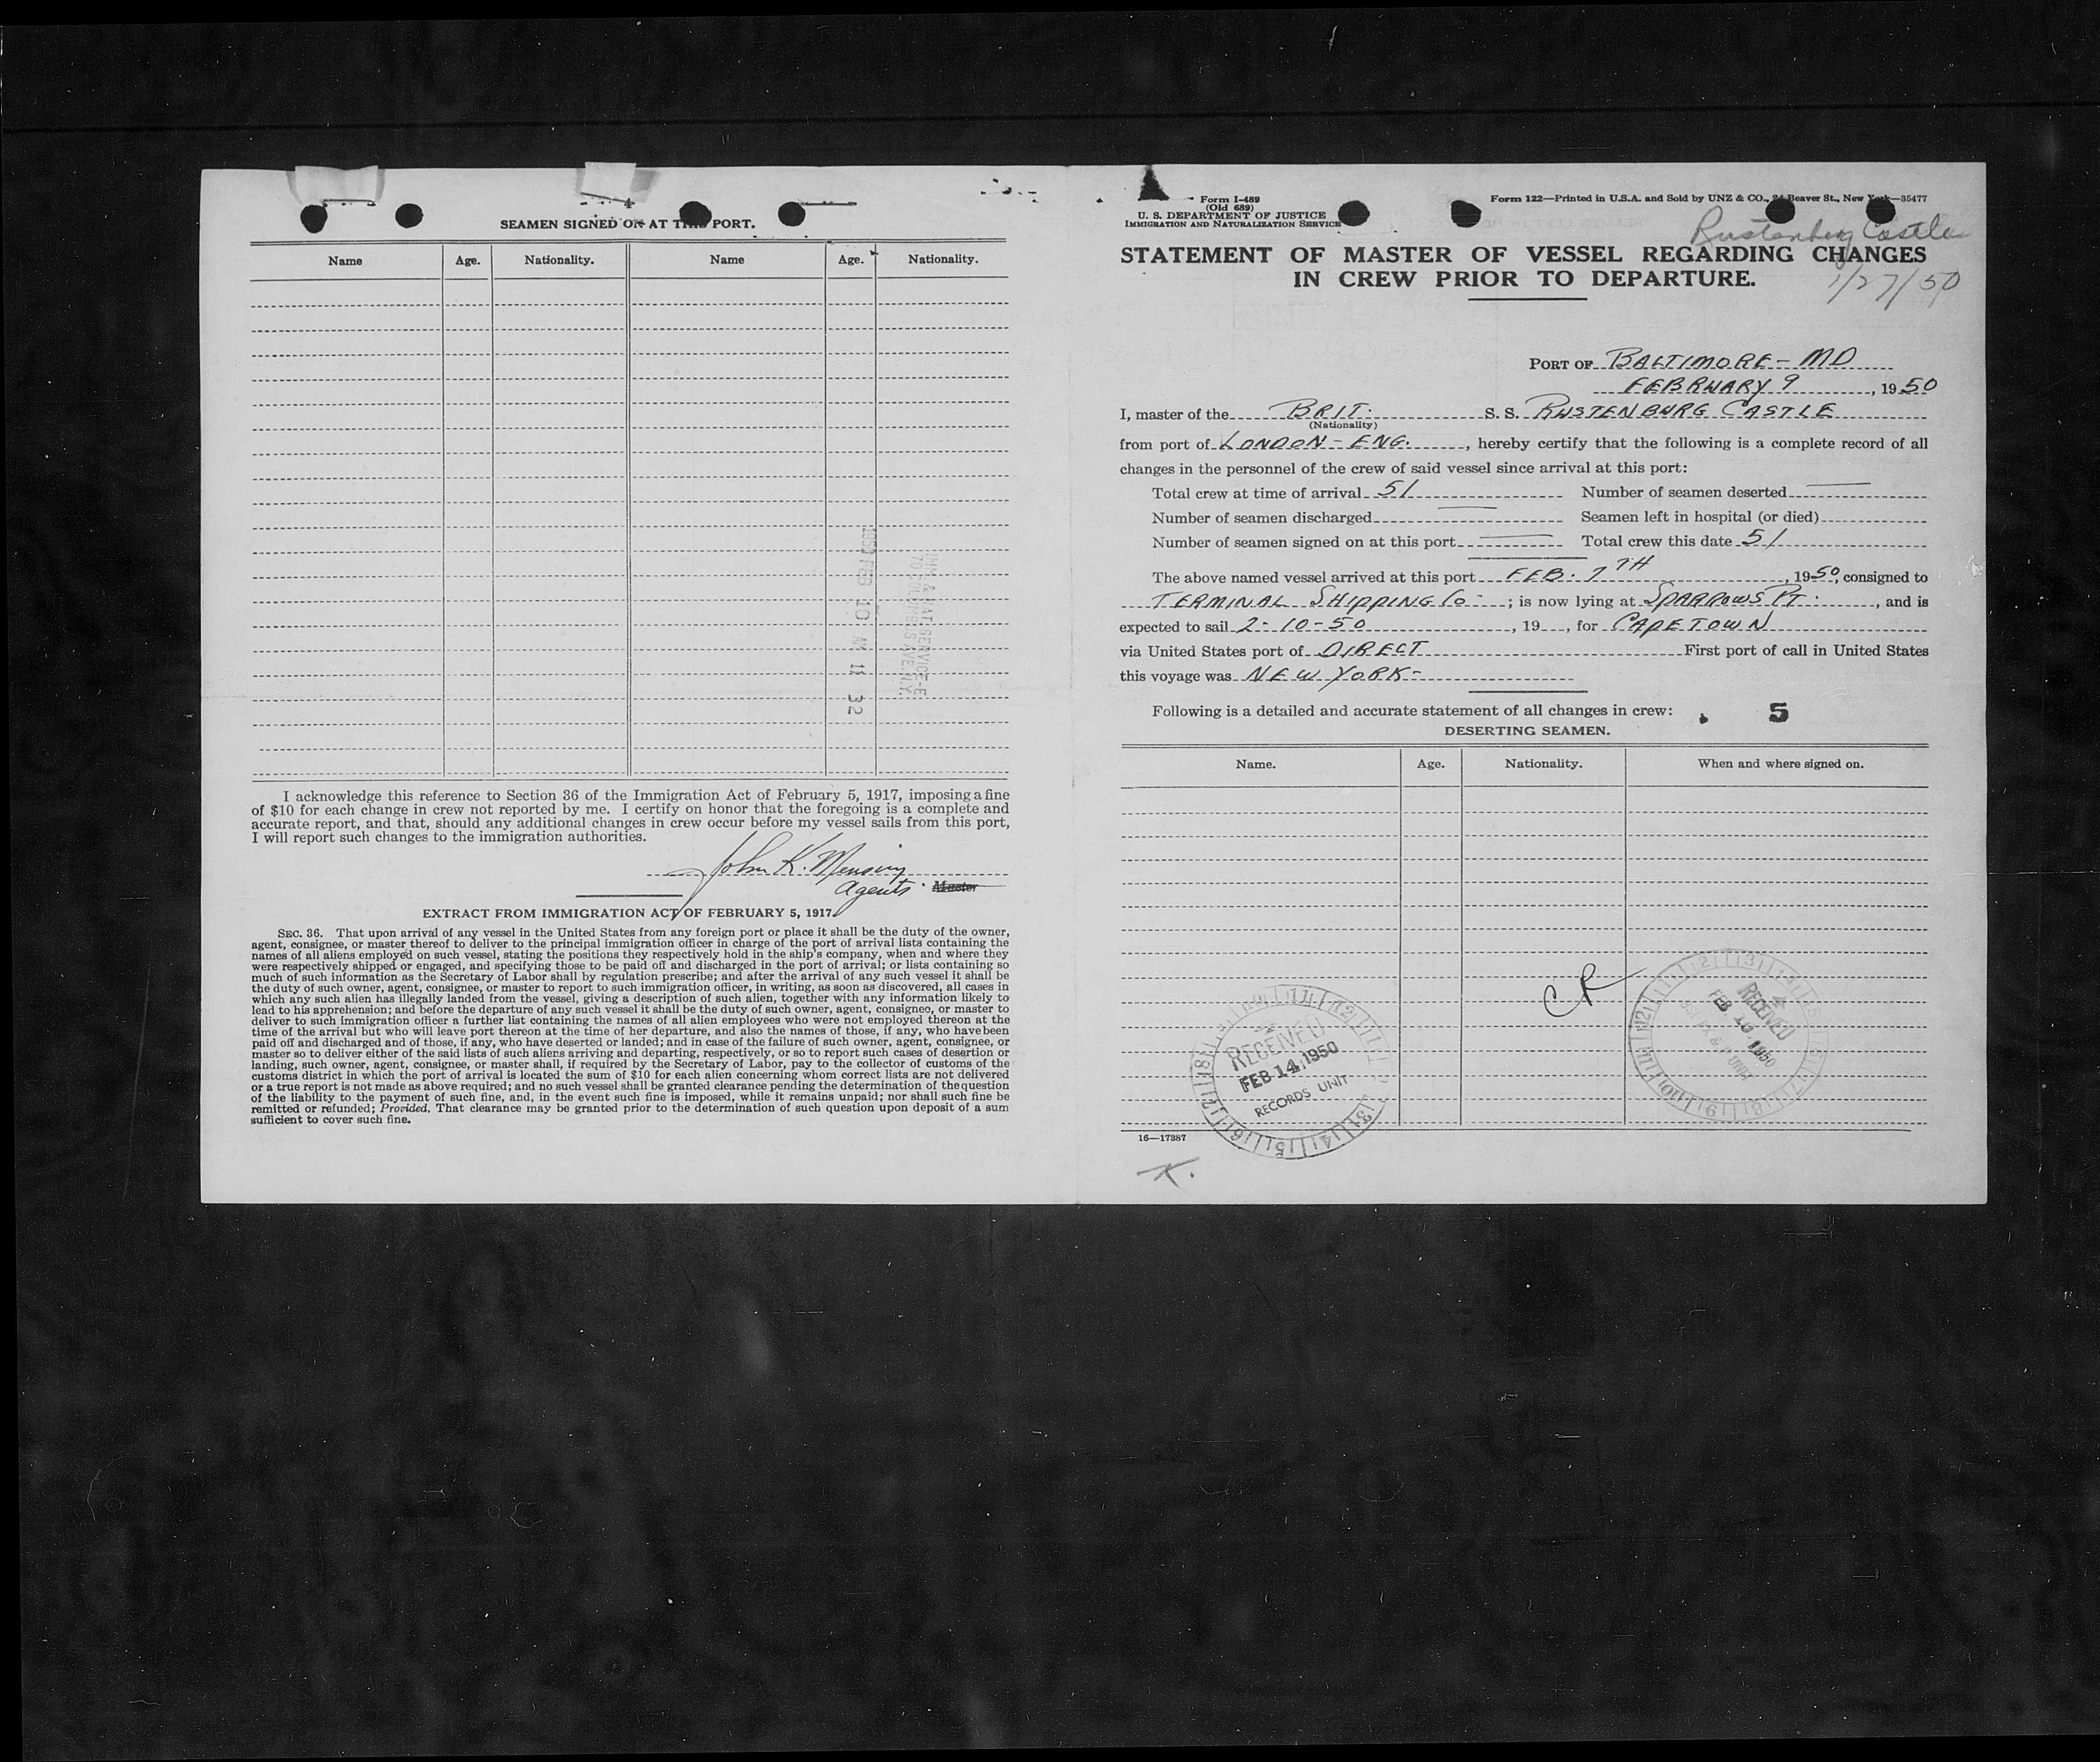 SEAMEN SIGNED ON AT THIS PORT.
Name Age. Nationality. Name Age. Nationality.
1950 FEB 10 AM 11 32
IMM. & NAT. SERVICE-E.
70 COLUMBUS AVE. N.Y.
I acknowledge this reference to Section 36 of the Immigration Act of February 5, 1917, imposing a fine
of $10 for each change in crew not reported by me. I certify on honor that the foregoing is a complete and
accurate report, and that, should any additional changes in crew occur before my vessel sails from this port,
I will report such changes to the immigration authorities.
John K. Mensing
Agents. Master
EXTRACT FROM IMMIGRATION ACT OF FEBRUARY 5, 1917.
SEC. 36. That upon arrival of any vessel in the United States from any foreign port or place it shall be the duty of the owner,
agent, consignee, or master thereof to deliver to the principal immigration officer in charge of the port of arrival lists containing the
names of all aliens employed on such vessel, stating the positions they respectively hold in the ship's company, when and where they
were respectively shipped or engaged, and specifying those to be paid off and discharged in the port of arrival; or lists containing so
much of such information as the Secretary of Labor shall by regulation prescribe; and after the arrival of any such vessel it shall be
the duty of such owner, agent, consignee, or master to report to such immigration officer, in writing, as soon as discovered, all cases in
which any such alien has illegally landed from the vessel, giving a description of such alien, together with any information likely to
lead to his apprehension; and before the departure of any such vessel it shall be the duty of such owner, agent, consignee, or master to
deliver to such immigration officer a further list containing the names of all alien employees who were not employed thereon at the
time of the arrival but who will leave port thereon at the time of her departure, and also the names of those, if any, who have been
paid off and discharged and of those, if any, who have deserted or landed; and in case of the failure of such owner, agent, consignee, or
master so to deliver either of the said lists of such aliens arriving and departing, respectively, or so to report such cases of desertion or
landing, such owner, agent, consignee, or master shall, if required by the Secretary of Labor, pay to the collector of customs of the
customs district in which the port of arrival is located the sum of $10 for each alien concerning whom correct lists are not delivered
or a true report is not made as above required; and no such vessel shall be granted clearance pending the determination of the question
of the liability to the payment of such fine, and, in the event such fine is imposed, while it remains unpaid; nor shall such fine be
remitted or refunded; Provided, That clearance may be granted prior to the determination of such question upon deposit of a sum
sufficient to cover such fine.
Form I-489
(Old 689)
U. S. DEPARTMENT OF JUSTICE
IMMIGRATION AND NATURALIZATION SERVICE
Form 122—Printed in U.S.A. and Sold by UNZ & CO., 24 Beaver St., New York—35477
Rustenburg Castle
STATEMENT OF MASTER OF VESSEL REGARDING CHANGES
IN CREW PRIOR TO DEPARTURE.
1/27/50
PORT OF BALTIMORE - MD
FEBRUARY 9, 1950
I, master of the BRIT. S. S. RUSTENBURG CASTLE
(Nationality)
from port of LONDON - ENG., hereby certify that the following is a complete record of all
changes in the personnel of the crew of said vessel since arrival at this port:
Total crew at time of arrival 51 Number of seamen deserted —
Number of seamen discharged — Seamen left in hospital (or died)
Number of seamen signed on at this port — Total crew this date 51
The above named vessel arrived at this port FEB. 7TH, 1950, consigned to
TERMINAL SHIPPING CO ; is now lying at SPARROWS PT., and is
expected to sail 2-10-50, 19 , for CAPETOWN
via United States port of DIRECT First port of call in United States
this voyage was NEW YORK-
Following is a detailed and accurate statement of all changes in crew: 5
DESERTING SEAMEN.
Name. Age. Nationality. When and where signed on.
CR
RECEIVED
FEB 14 1950
RECORDS UNIT
RECEIVED
FEB 10 1950
16—17387
K.